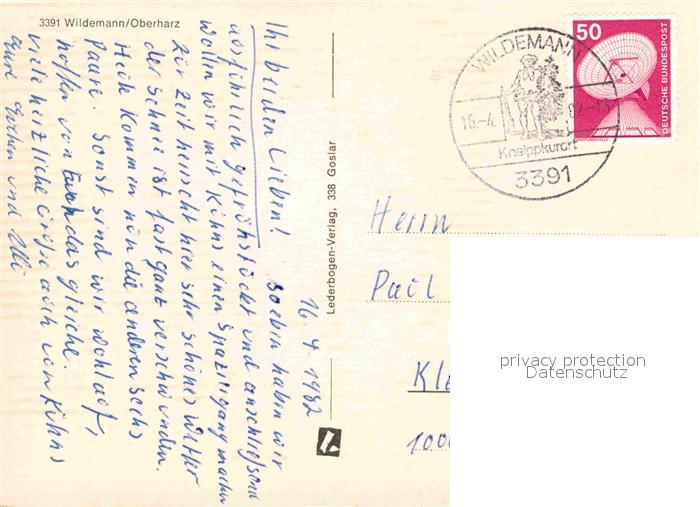 3391 Wildemann/Oberharz
16.4.1982
Ihr beiden Lieben!
Soeben haben wir
ausführlich gefrühstückt und anschließend
wollen wir mit Kühns einen Spaziergang machen
Zur Zeit herrscht hier sehr schönes Wetter
der Schnee ist fast ganz verschwunden.
Heute kommen nun die anderen sechs
Paare. Sonst sind wir wohlauf,
hoffen von Euch das gleiche.
Viele herzliche Grüße auch von Kühns
Eure und Ulli
Lederbogen-Verlag, 338 Goslar
WILDEMANN
16.-4. 82-13
Kneippkurort
3391
50
DEUTSCHE BUNDESPOST
Herrn
Paul
Kle
1000
privacy protection
Datenschutz